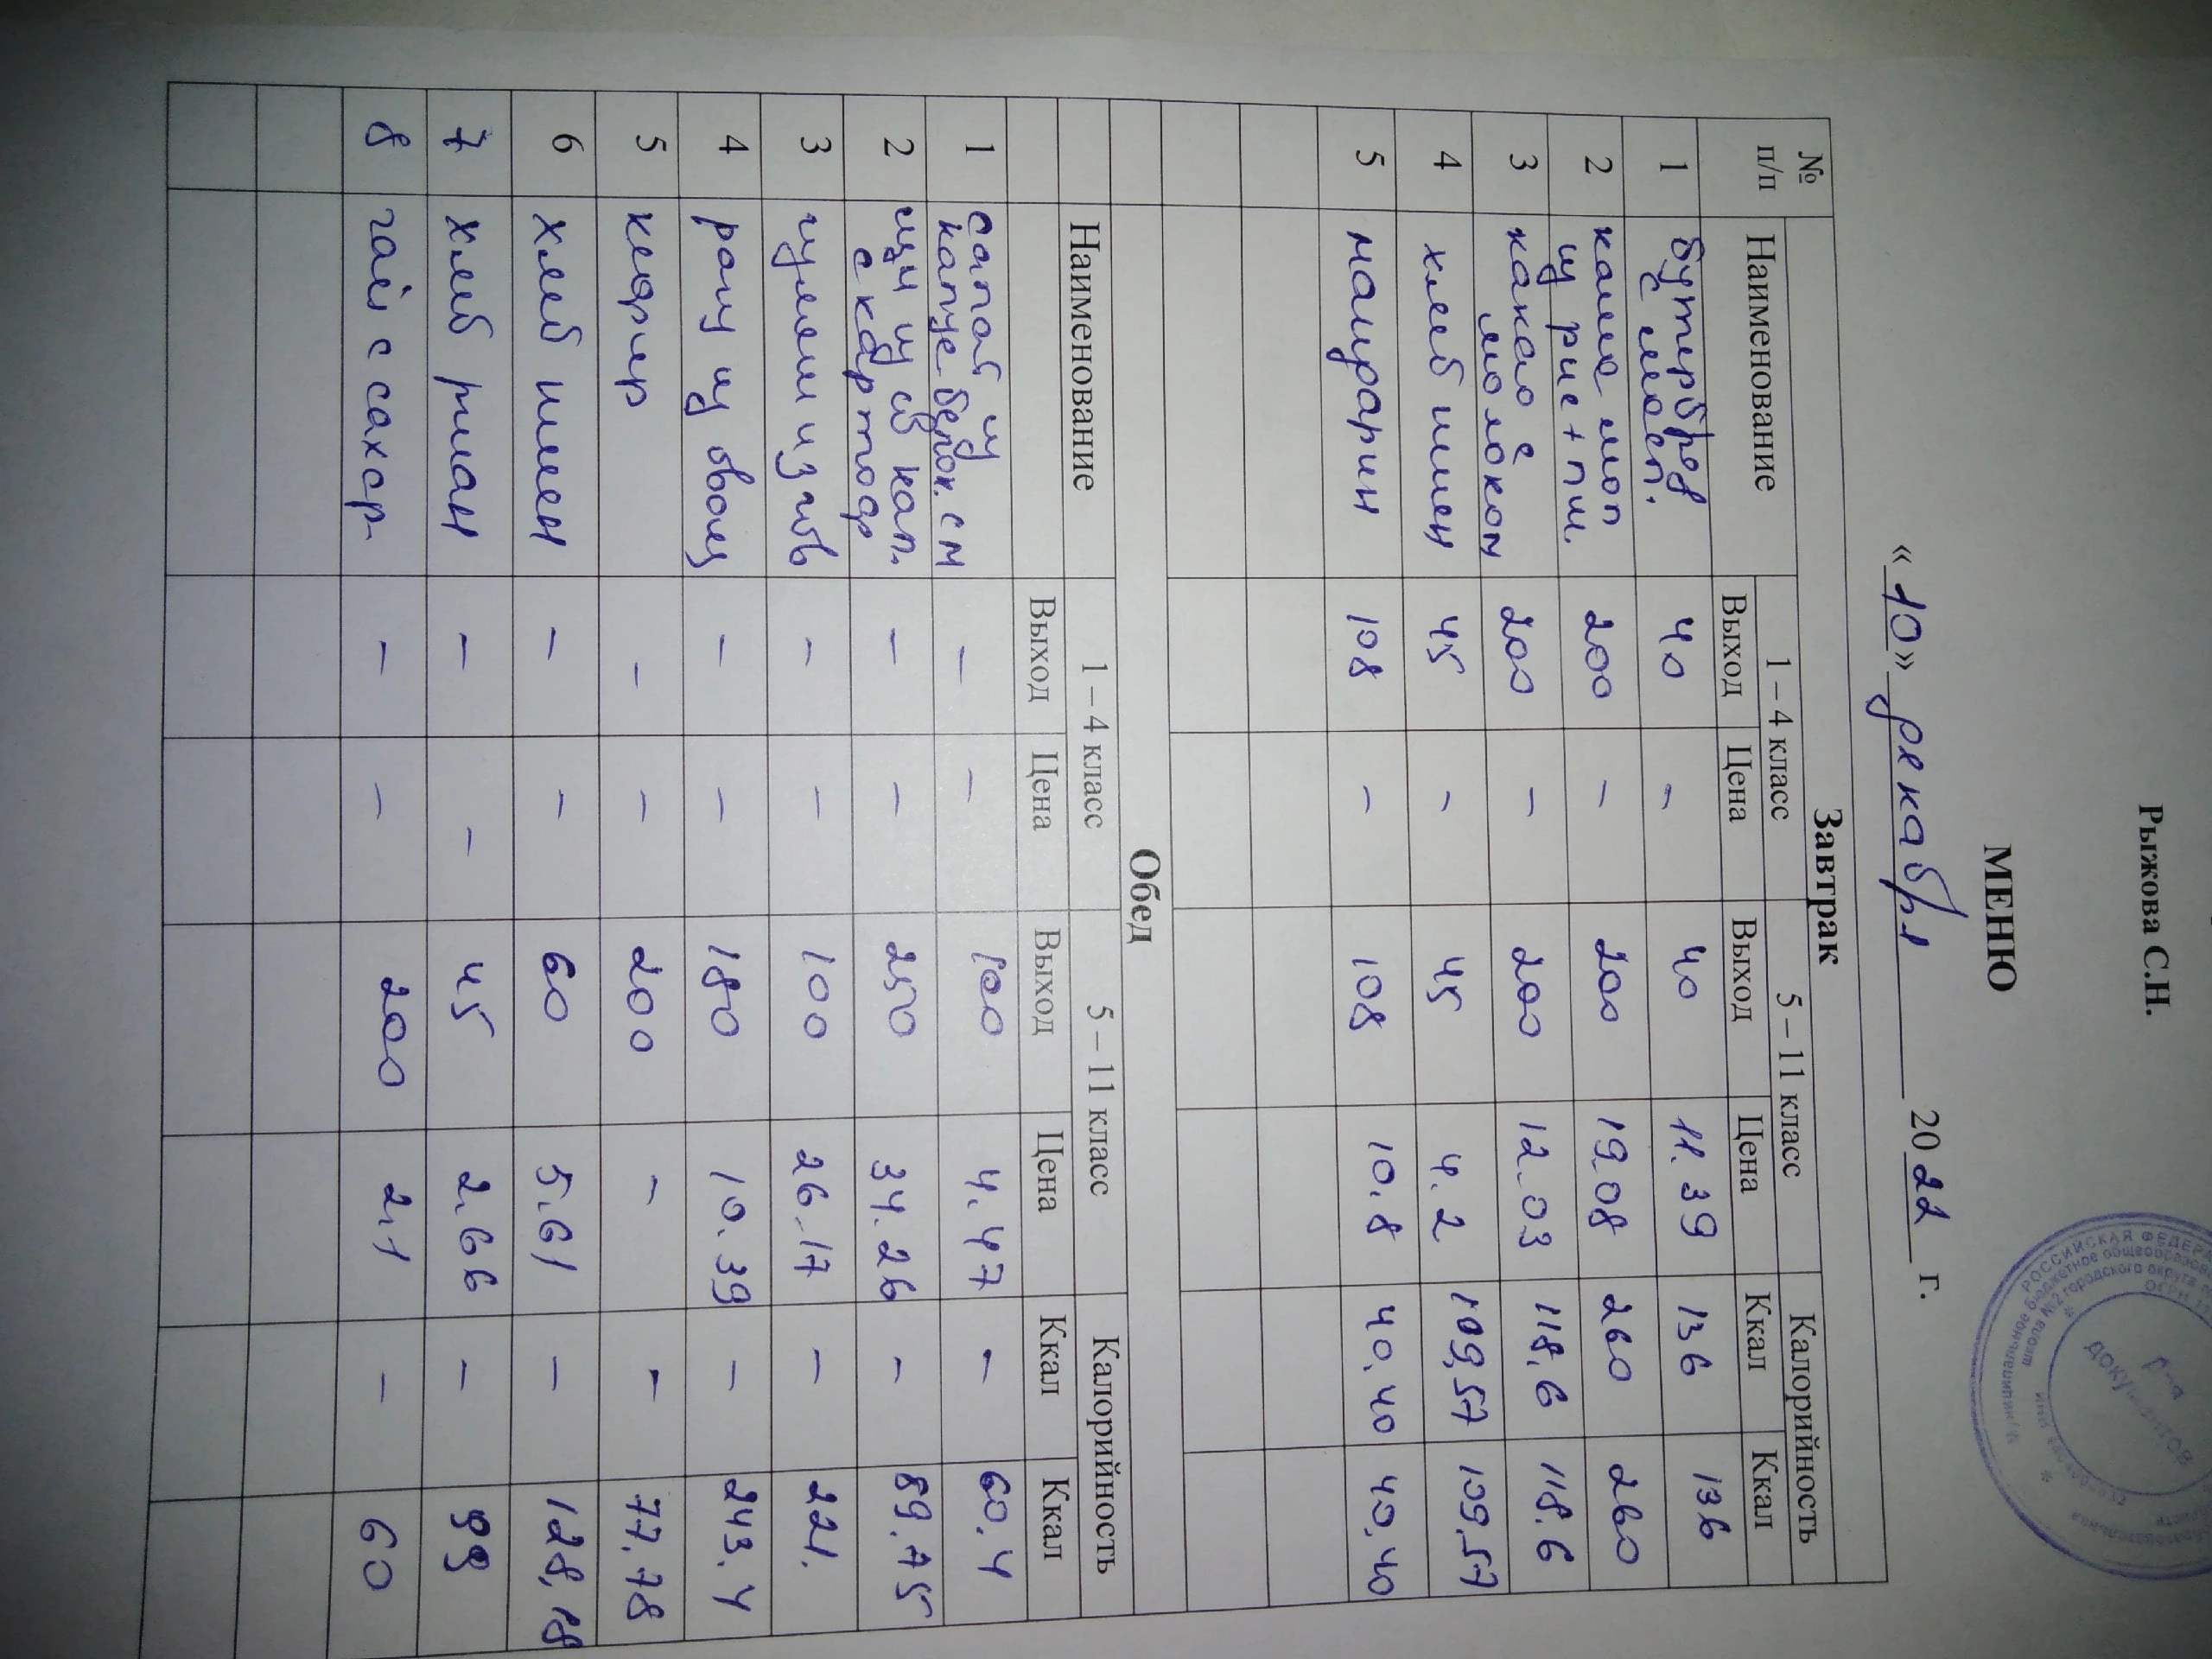 Рыжова С.Н.
МЕНЮ
«10» декабря 2022 г.
Завтрак
№ п/п Наименование 1 – 4 класс 5 – 11 класс Калорийность
Выход Цена Выход Цена Ккал Ккал
1 бутерброд с масл. 40 – 40 11.39 136 136
2 каша мол из рис + пш. 200 – 200 19.08 260 260
3 какао с молоком 200 – 200 12.03 118.6 118.6
4 хлеб пшен 45 – 45 4.2 109,57 109.57
5 мандарин 108 – 108 10.8 40,40 40.40
Обед
Наименование 1 – 4 класс 5 – 11 класс Калорийность
Выход Цена Выход Цена Ккал Ккал
1 салат из капусты белок. с м – – 100 4.47 – 60.4
2 щи из св кап. с картоф – – 250 34.26 – 89.75
3 гуляш из гов – – 100 26.17 – 221.
4 рагу из овощ – – 180 10.39 – 243.4
5 кефир – – 200 – – 77.78
6 хлеб пшен – – 60 5.61 – 128,18
7 хлеб ржан – – 45 2.66 – 99
8 чай с сахар – – 200 2.1 – 60
РОССИЙСКАЯ ФЕДЕР
школа №2 городского округа
ОГРН